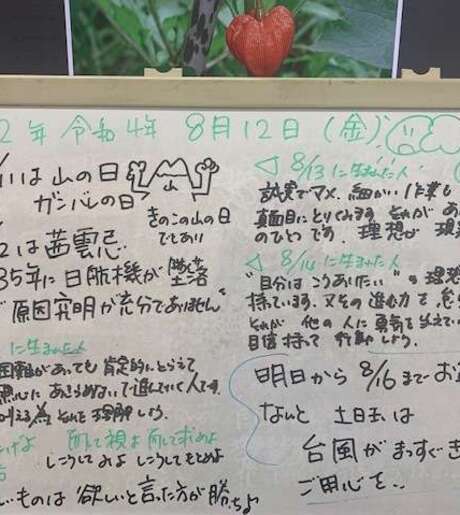 2年 令和4年 8月12日(金)
/11は山の日
ガンバルの日
山
きのこの山の日
でもあり
2は茜雲忌
85年に日航機が墜落
原因究明が充分でありません
に生まれた人
困難があっても 肯定的にとらえて
あきらめないで進んでいく人です。
しこうしてみよ しこうしてもとめよ
しいものは 欲しいと言った方が勝ちよ
◁ 8/13 に生まれた人
誠実でマメ、細かい作業も
真面目にとりくみます それが あ
のひとつです。理想が 現
◁ 8/14 に生まれた人
"自分は こうありたい" の 理想
持っています。又その 進む力で
それが 他の人に勇気を与えてい
目標 持って 行動しよう。
明日から 8/16まで お
なんと 土日は
台風が まっすぐ き
ご用心を..